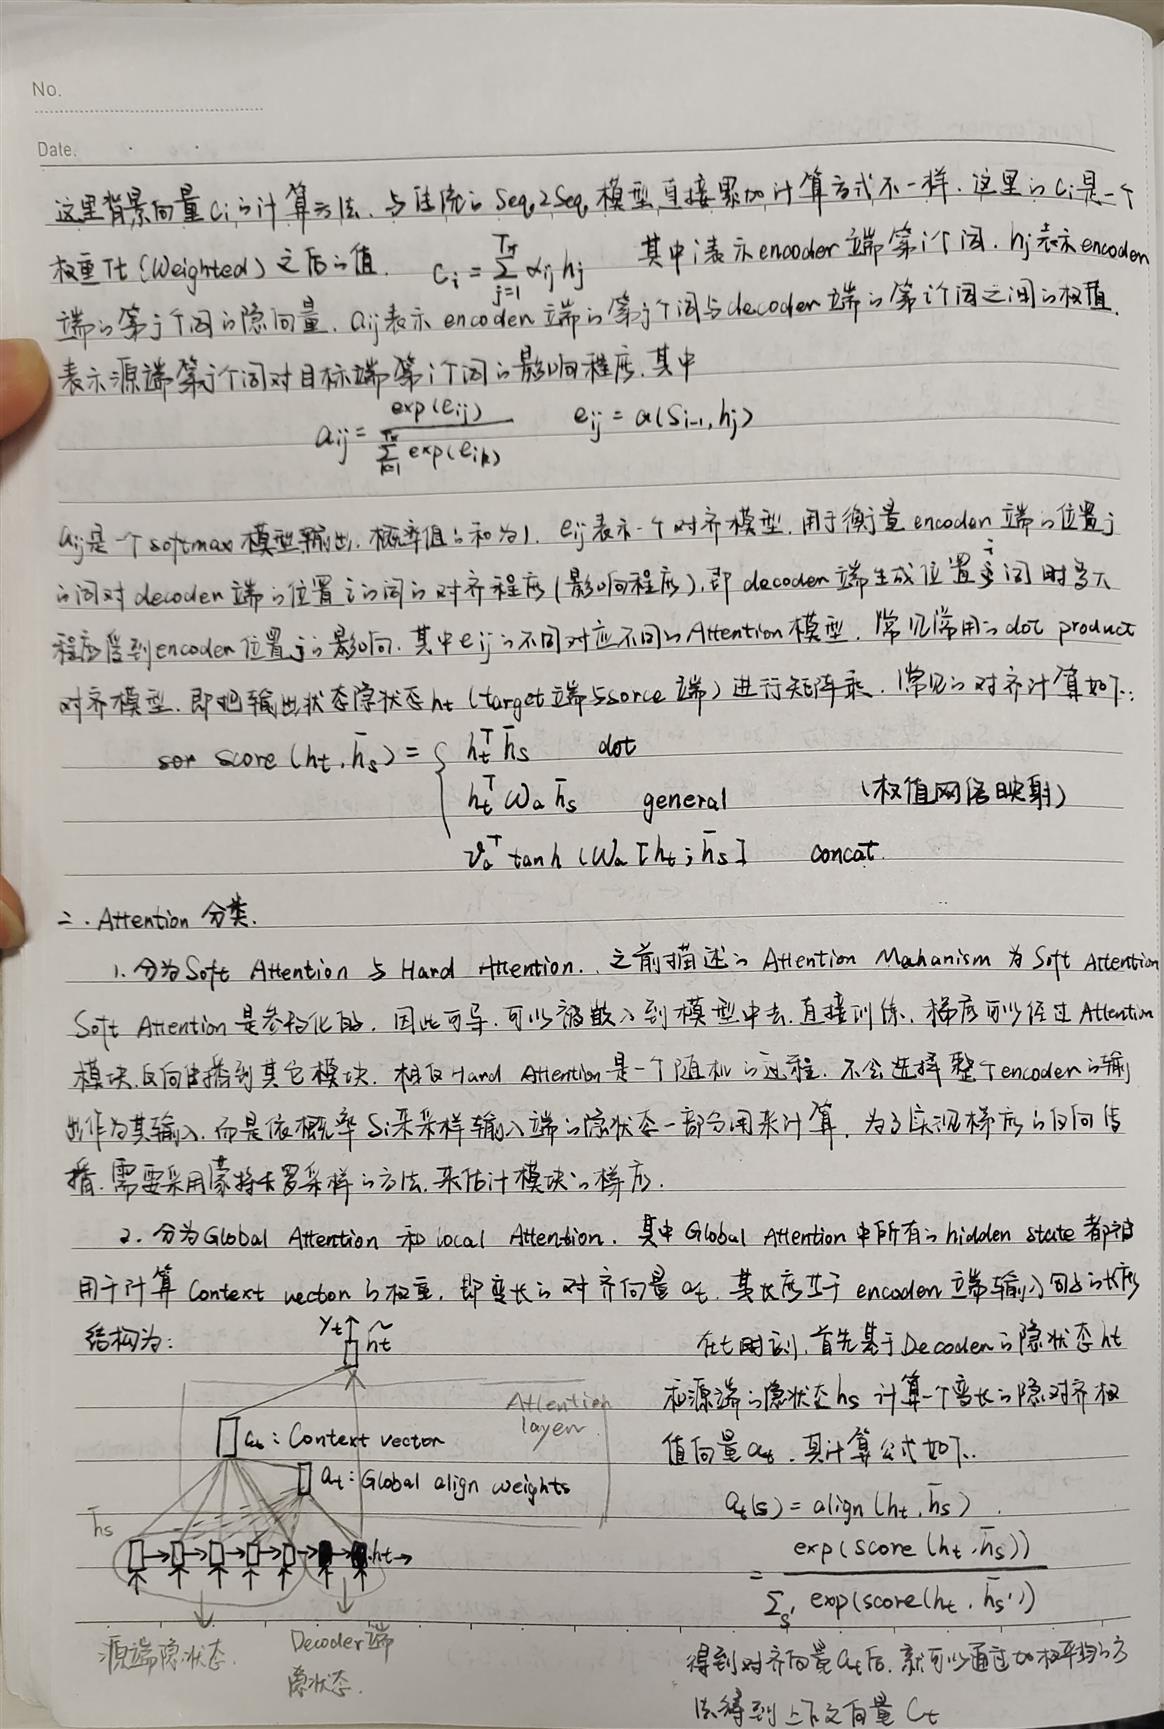 No.
Date.
这里背景向量Ci的计算方法,与传统的Seq2Seq模型直接累加计算方式不一样.这里的Ci是一个
权重Tt(Weighted)之后的值. c_i = \sum_{j=1}^{Tx} α_{ij} h_j 其中i表示encoder端第i个词.hj表示encoder
端的第j个词的隐向量.aij表示encoder端的第j个词与decoder端的第i个词之间的权值.
表示源端第j个词对目标端第i个词的影响程度.其中
a_{ij} = \frac{exp(e_{ij})}{\sum_{k=1}^{Tx} exp(e_{ik})} e_{ij} = a(S_{i-1}, h_j)
aij是一个softmax模型输出.概率值的和为1. eij表示一个对齐模型.用于衡量encoder端的位置j
的词对decoder端的位置i的词的对齐程度(影响程度),即decoder端生成位置i词时多大
程度受到encoder位置j的影响.其中eij的不同对应不同的Attention模型.常见常用的dot product
对齐模型.即把输出状态隐状态ht(target端与sorce端)进行矩阵乘.常见的对齐计算如下:
score(h_t, \bar{h}_s) = { h_t^T \bar{h}_s dot
h_t^T W_a \bar{h}_s general (权值网络映射)
v_a^T tanh(W_a[h_t; \bar{h}_s] concat
二.Attention分类.
1.分为Soft Attention与Hard Attention.之前描述的Attention Mahanism为Soft Attention
Soft Attention是参数化的.因此可导,可以被嵌入到模型中去.直接训练.梯度可以经过Attention
模块.反向传播到其它模块.相反Hard Attention是一个随机的过程.不会选择整个encoder的输
出作为其输入.而是依概率Si来采样输入端的隐状态一部分用来计算.为了实现梯度的反向传
播.需要采用蒙特卡罗采样的方法.来估计模块的梯度.
2.分为Global Attention和local Attention.其中Global Attention中所有的hidden state都被
用于计算Context vector的权重.即变长的对齐向量at.其长度等于encoder端输入句子的长度
结构为:
yt
\tilde{h}t
Attention
layer
ct: Context vector
at: Global align weights
\bar{h}s
ht
源端隐状态.
Decoder端
隐状态.
在t时刻,首先基于Decoder的隐状态ht
和源端的隐状态hs计算一个变长的隐对齐权
值向量at.其计算公式如下.
a_t(s) = align(h_t, \bar{h}_s).
= \frac{exp(score(h_t, \bar{h}_s))}{\sum_{s'} exp(score(h_t, \bar{h}_{s'}))}
得到对齐向量at后.就可以通过加权平均的方
法得到上下文向量Ct